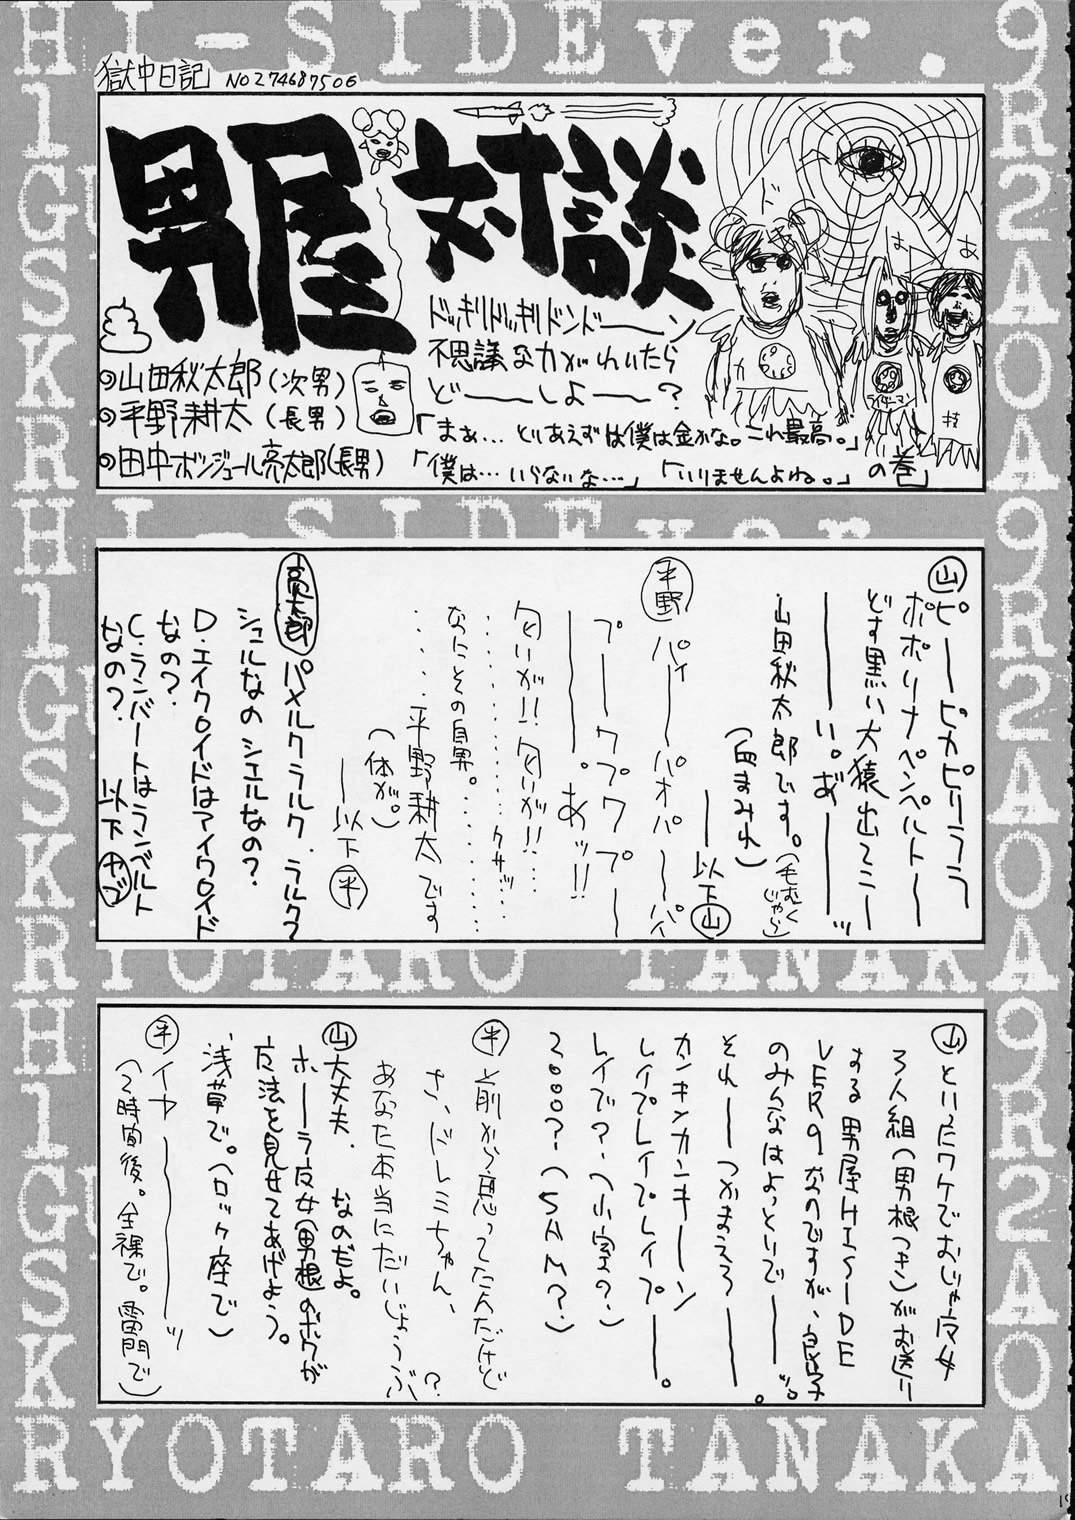 HI-SIDEver.9
獄中日記 NO274687506
男屋対談
ドッキリドッキリドンドーーン
不思議な力がわいたら
どーーしよーー?
「まぁ…とりあえずは僕は金かな。これ最高。」
「僕は…いらないな…」「いりませんよね。」の巻
◎山田秋太郎(次男)
◎平野耕太(長男)
◎田中ボンジュール亮太郎(長男)
技
HI-SIDEver.
山 ピーーピカピリララ
ポポリナペンペルトー
どす黒い大猿出てこー
ーーい。あ"ーーッ
山田秋太郎です。(毛むくじゃら)
(血まみれ)
ーー以下山
平野 パイーーパオパーーパ
プーークプワプーー
ーー。あッ!!
匂いが!!匂いが!!
クサッ
なにその自男。
平野耕太です
(体が。)
ーー以下平
亮太郎 パメルクラルク、ラルク?
シュルなのシエルなの?
D・エイクロイドはアイクロイド
なの?
C・ランバートはランベルト
なの? 以下
RYOTARO TANAKA
山 といったワケでおじゃ魔女
3人組(男根つき)がお送り
する男屋HISIDE
VER9なのですが、良い子
のみんなはよっといでーーッ。
それーーつかまろろーー。
カンキンカンキーーン
レイプレイプレイプーー。
レイプで?(小室の?)
2000?(SAM?)
平 前から思ってたんだけど
さ、ドレミちゃん、
あなた本当にだいじょうぶ?
山 大丈夫、なのだよ。
ホーーラ魔女(男根のボクが
魔法を見せてあげよう。
浅草で。(ロック座で)
平 イヤーーーッ
(2時間後。全裸で。雷門で)
RYOTARO TANAKA